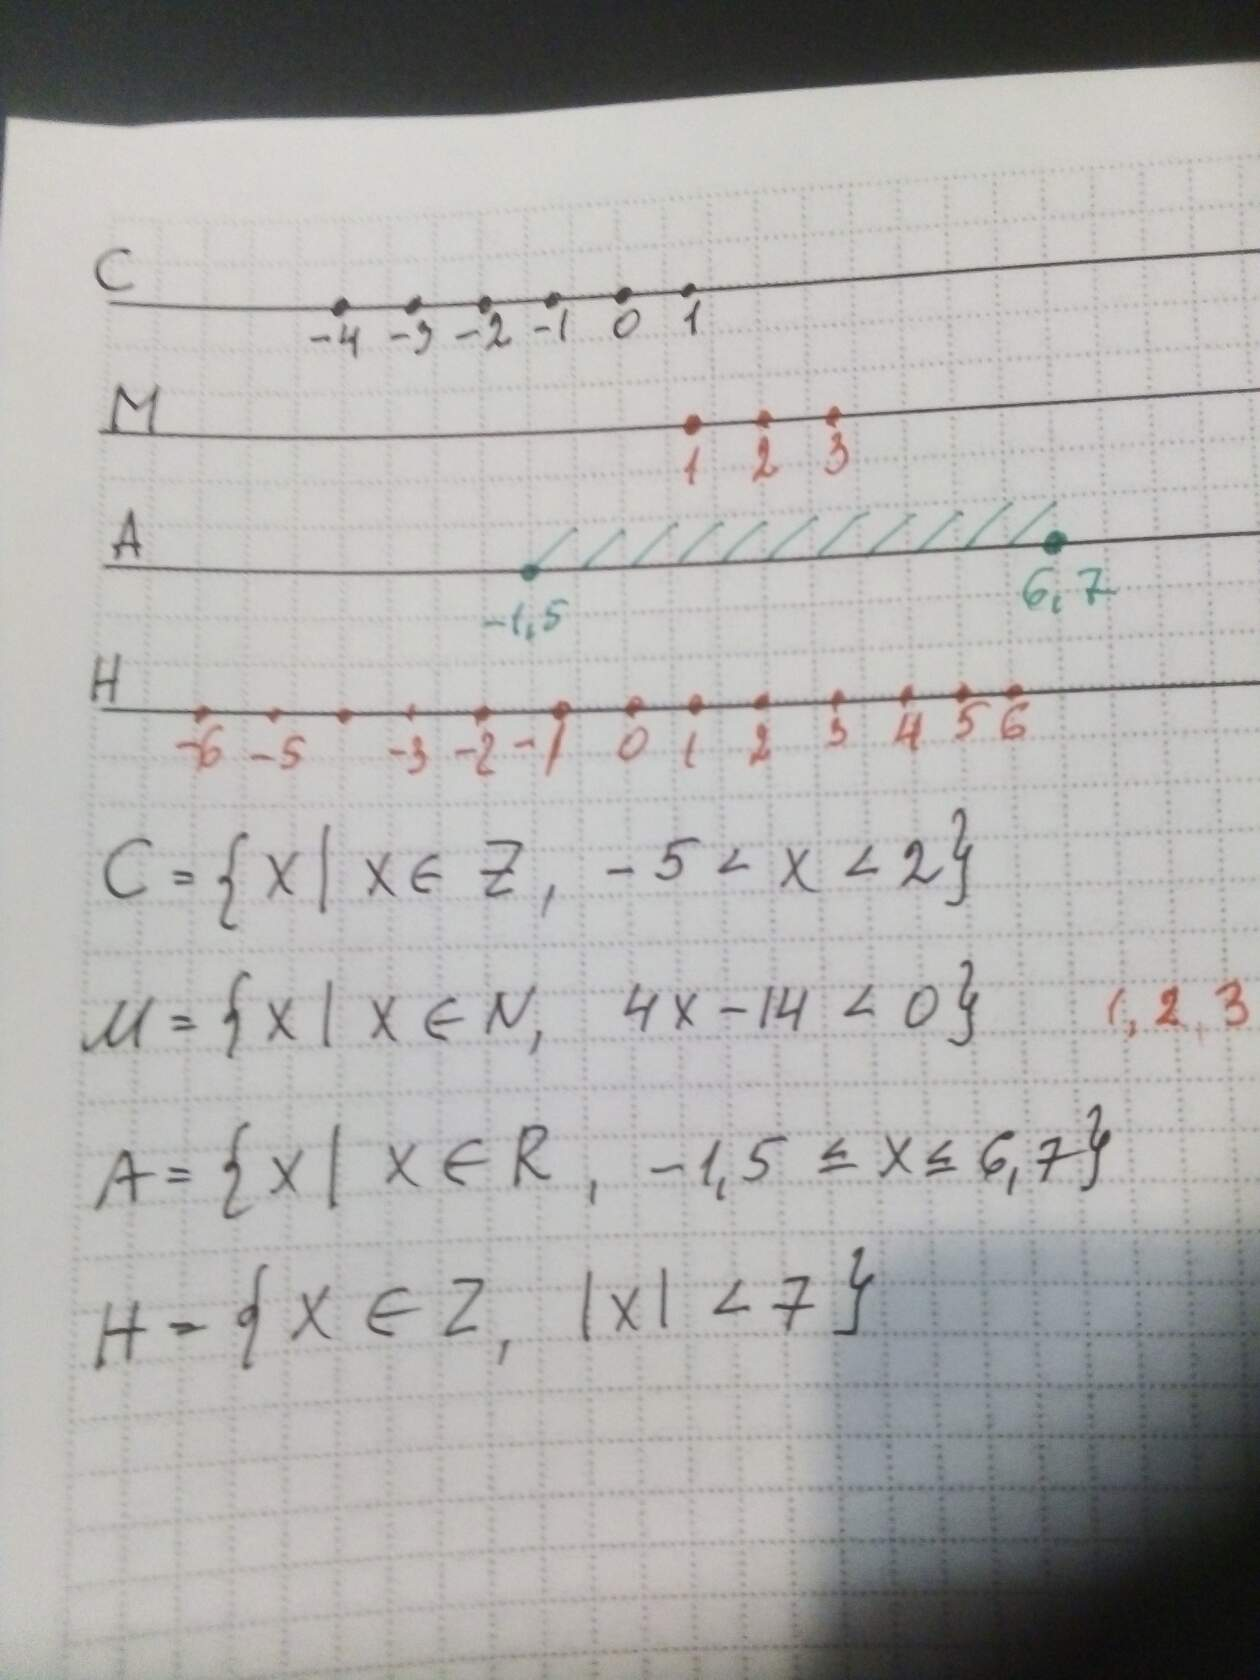 C
-4 -3 -2 -1 0 1
M
1 2 3
A
-1,5 6,7
H
-6 -5 -3 -2 -1 0 1 2 3 4 5 6
C = {x | x ∈ Z, -5 < x < 2}
M = {x | x ∈ N, 4x - 14 < 0} 1, 2, 3
A = {x | x ∈ R, -1,5 ≤ x ≤ 6,7}
H = {x ∈ Z, |x| < 7}